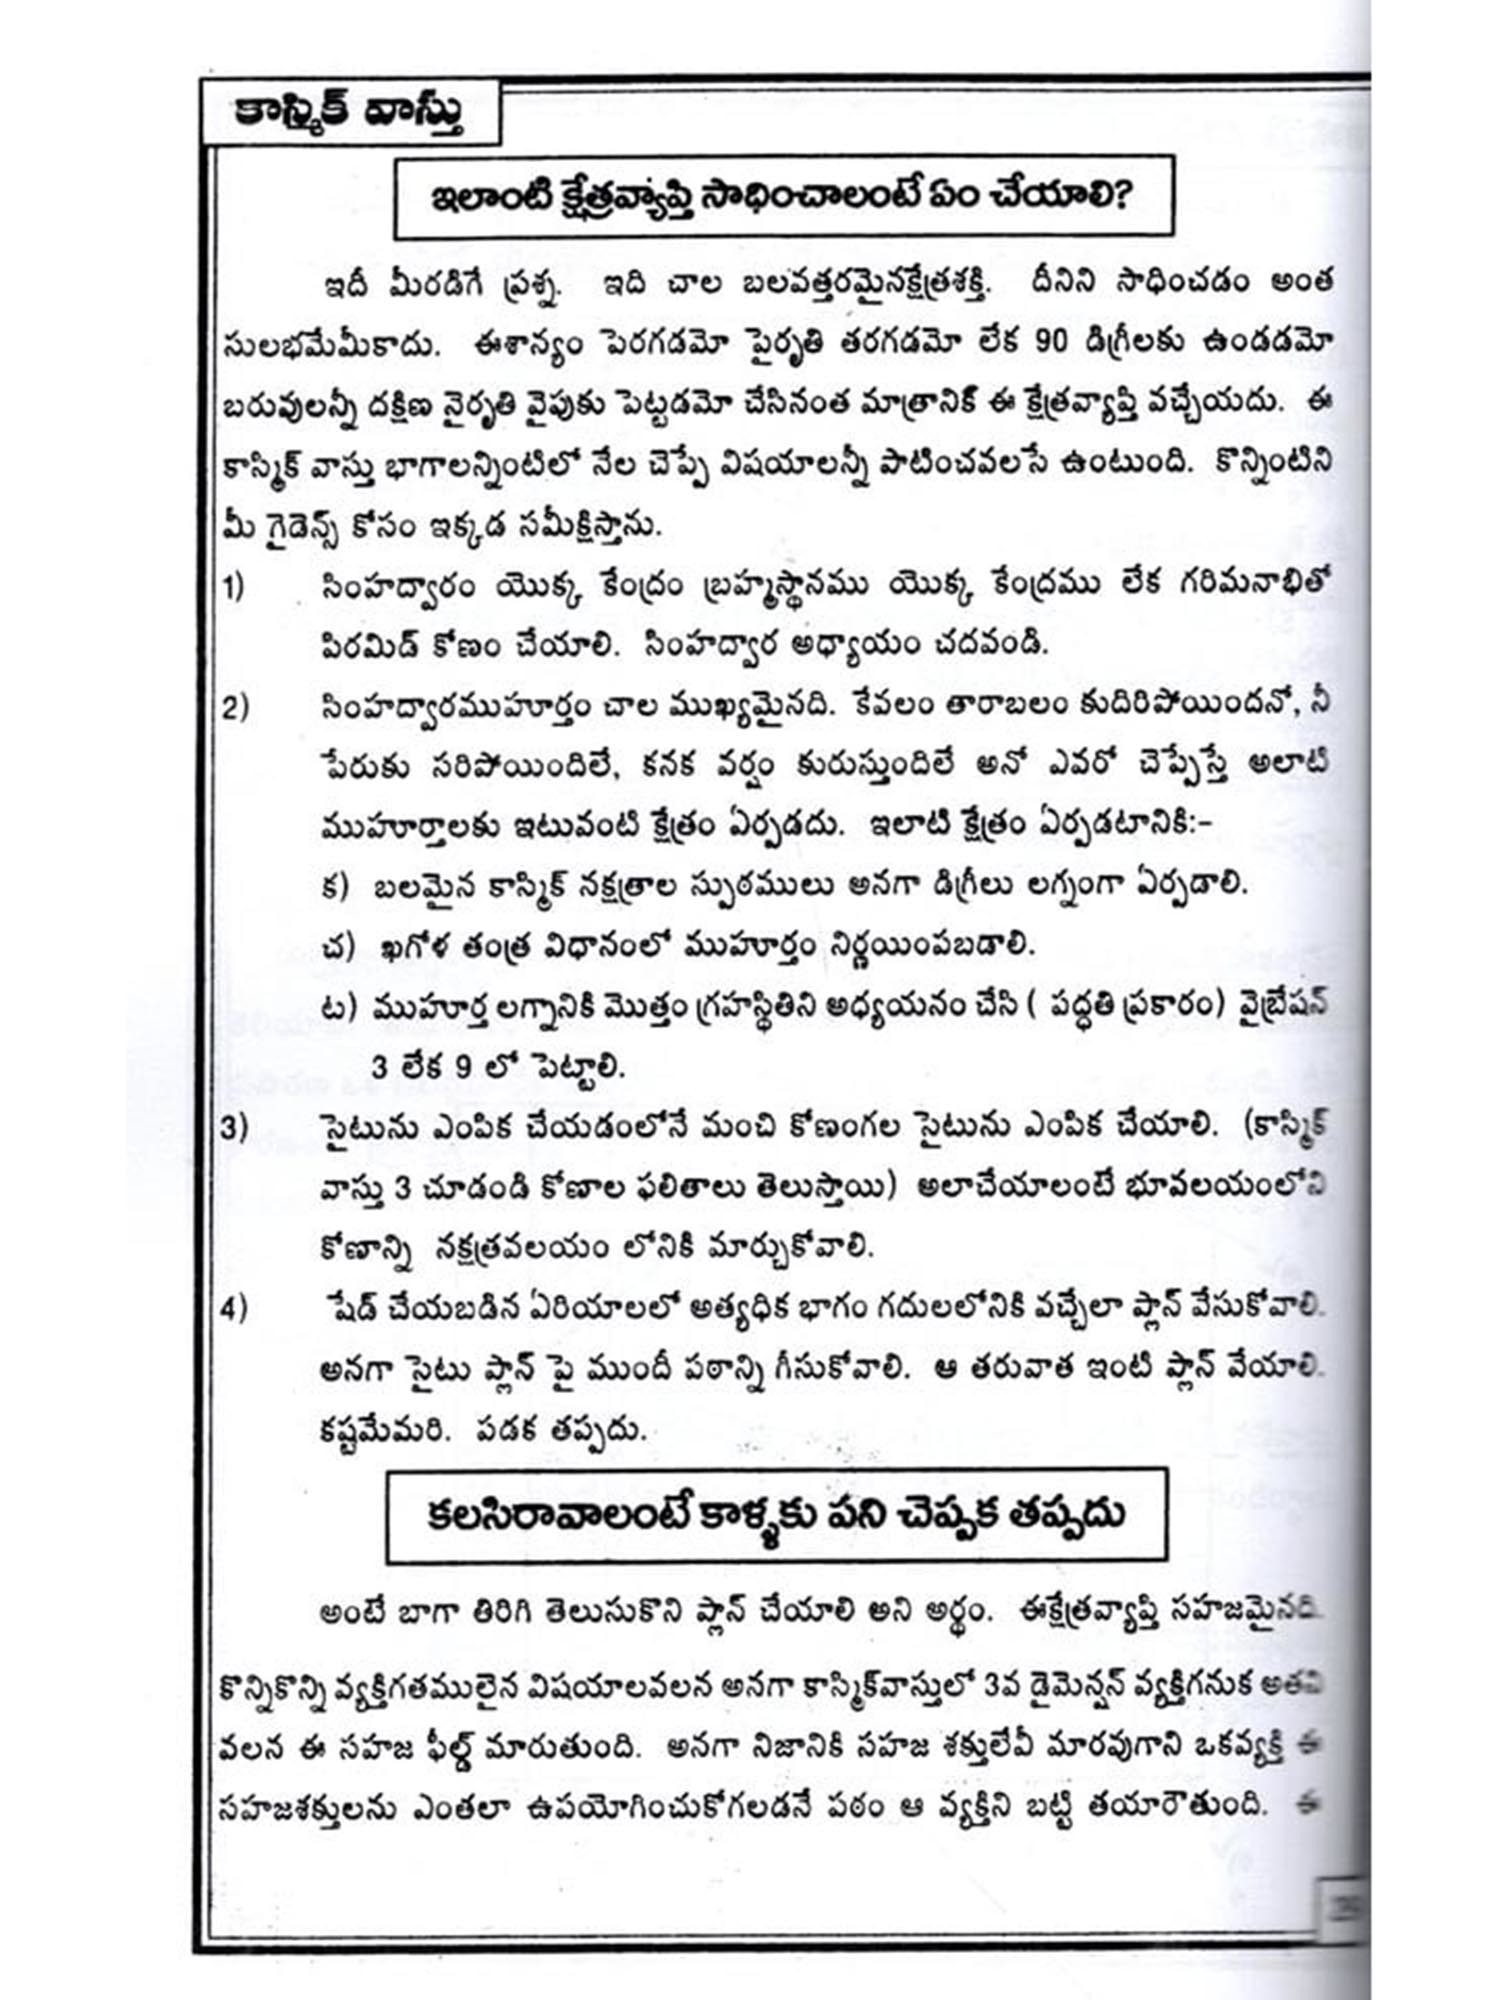 కాస్మిక్ వాస్తు
ఇలాంటి క్షేత్రవ్యాప్తి సాధించాలంటే ఏం చేయాలి?
ఇదీ మీరడిగే ప్రశ్న. ఇది చాల బలవత్తరమైనక్షేత్రశక్తి. దీనిని సాధించడం అంత
సులభమేమీకాదు. ఈశాన్యం పెరగడమో పైరృతి తరగడమో లేక 90 డిగ్రీలకు ఉండడమో
బరువులన్నీ దక్షిణ నైరృతి వైపుకు పెట్టడమో చేసినంత మాత్రానికే ఈ క్షేత్రవ్యాప్తి వచ్చేయదు. ఈ
కాస్మిక్ వాస్తు భాగాలన్నింటిలో నేల చెప్పే విషయాలన్నీ పాటించవలసే ఉంటుంది. కొన్నింటిని
మీ గైడెన్స్ కోసం ఇక్కడ సమీక్షిస్తాను.
1) సింహద్వారం యొక్క కేంద్రం బ్రహ్మస్థానము యొక్క కేంద్రము లేక గరిమనాభితో
పిరమిడ్ కోణం చేయాలి. సింహద్వార అధ్యాయం చదవండి.
2) సింహద్వారముహూర్తం చాల ముఖ్యమైనది. కేవలం తారాబలం కుదిరిపోయిందనో, నీ
పేరుకు సరిపోయిందిలే, కనక వర్షం కురుస్తుందిలే అనో ఎవరో చెప్పేస్తే అలాటి
ముహూర్తాలకు ఇటువంటి క్షేత్రం ఏర్పడదు. ఇలాటి క్షేత్రం ఏర్పడటానికి:-
క) బలమైన కాస్మిక్ నక్షత్రాల స్ఫుఠములు అనగా డిగ్రీలు లగ్నంగా ఏర్పడాలి.
చ) ఖగోళ తంత్ర విధానంలో ముహూర్తం నిర్ణయింపబడాలి.
ట) ముహూర్త లగ్నానికి మొత్తం గ్రహస్థితిని అధ్యయనం చేసి ( పద్ధతి ప్రకారం) వైబ్రేషన్
3 లేక 9 లో పెట్టాలి.
3) సైటును ఎంపిక చేయడంలోనే మంచి కోణంగల సైటును ఎంపిక చేయాలి. (కాస్మిక్
వాస్తు 3 చూడండి కోణాల ఫలితాలు తెలుస్తాయి) అలాచేయాలంటే భూవలయంలోని
కోణాన్ని నక్షత్రవలయం లోనికి మార్చుకోవాలి.
4) షేడ్ చేయబడిన ఏరియాలలో అత్యధిక భాగం గదులలోనికి వచ్చేలా ప్లాన్ వేసుకోవాలి.
అనగా సైటు ప్లాన్ పై ముందీ పఠాన్ని గీసుకోవాలి. ఆ తరువాత ఇంటి ప్లాన్ వేయాలి.
కష్టమేమరి. పడక తప్పదు.
కలసిరావాలంటే కాళ్ళకు పని చెప్పక తప్పదు
అంటే బాగా తిరిగి తెలుసుకొని ప్లాన్ చేయాలి అని అర్థం. ఈక్షేత్రవ్యాప్తి సహజమైనది.
కొన్నికొన్ని వ్యక్తిగతములైన విషయాలవలన అనగా కాస్మిక్‌వాస్తులో 3వ డైమెన్షన్ వ్యక్తిగనుక అతని
వలన ఈ సహజ ఫీల్డ్ మారుతుంది. అనగా నిజానికి సహజ శక్తులేవీ మారవుగాని ఒకవ్యక్తి ఈ
సహజశక్తులను ఎంతలా ఉపయోగించుకోగలడనే పఠం ఆ వ్యక్తిని బట్టి తయారౌతుంది. ఈ